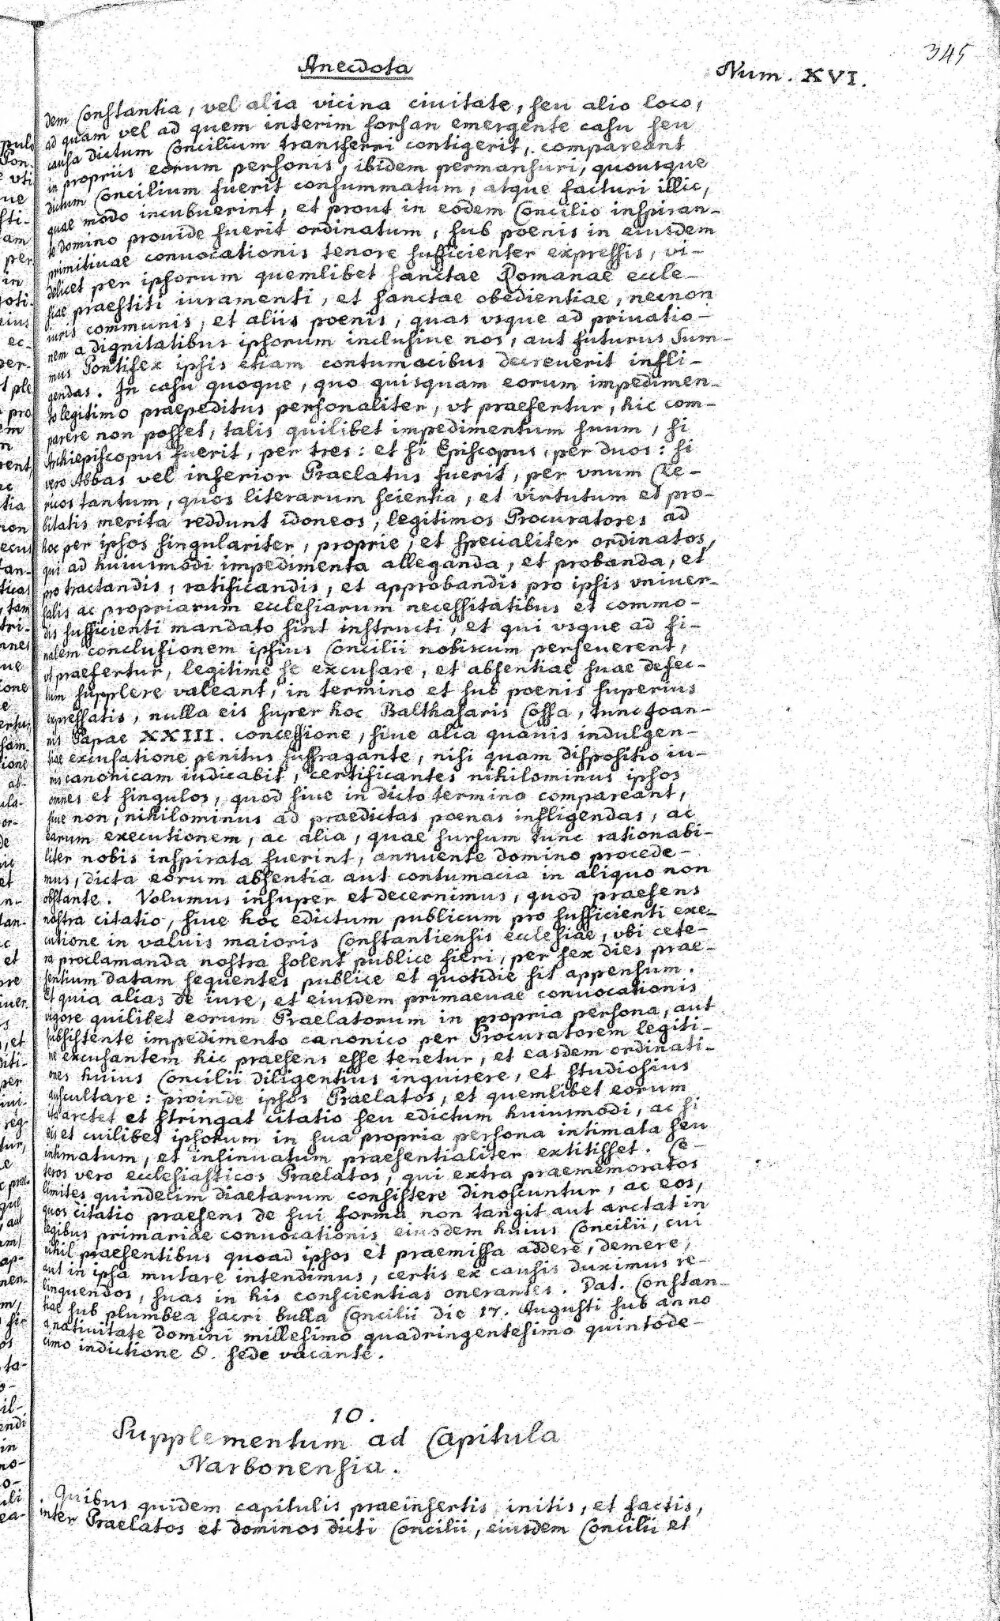 345
Anecdota
Num. XVI.
dem Constantia, vel alia vicina ciuitate, seu alio loco,
ad quam vel ad quem interim forsan emergente casu seu
causa dictum Concilium transferri contigerit, compareant
in propriis eorum personis, ibidem permansuri, quousque
dictum Concilium fuerit consummatum, atque facturi illic,
quae modo incubuerint, et prout in eodem Concilio inspiran-
te domino prouide fuerit ordinatum, sub poenis in eiusdem
primitiuae conuocationis tenore sufficienter expressis, vi-
delicet per ipsorum quemlibet sanctae Romanae eccle-
siae praestiti iuramenti, et sanctae obedientiae, necnon
iuris communis, et aliis poenis, quas vsque ad priuatio-
nem a dignitatibus ipsorum inclusiue nos, aut futurus Sum-
mus Pontifex ipsis etiam contumacibus decreuerit infli-
gendas. In casu quoque, quo quisquam eorum impedimen-
to legitimo praepeditus personaliter, vt praefertur, hic com-
parere non posset, talis quilibet impedimentum suum, si
Archiepiscopus fuerit, per tres: et si Episcopus, per duos: si
vero Abbas vel inferior Praelatus fuerit, per vnum Cle-
ricos tantum, quos literarum scientia, et virtutum et pro-
bitatis merita reddunt idoneos, legitimos Procuratores ad
hoc per ipsos singulariter, proprie, et specialiter ordinatos,
qui ad huiusmodi impedimenta alleganda, et probanda, et
pro tractandis, ratificandis, et approbandis pro ipsis vniuer-
salis ac propriarum ecclesiarum necessitatibus et commo-
dis sufficienti mandato sint instructi, et qui vsque ad fi-
nalem conclusionem ipsius Concilii nobiscum perseuerent,
vt praefertur, legitime se excusare, et absentiae suae defec-
tum supplere valeant, in termino et sub poenis superius
expressatis, nulla eis super hoc Balthasaris Cossa, tunc Joan-
nis Papae XXIII. concessione, siue alia quauis indulgen-
tiae excusatione penitus suffragante, nisi quam dispositio iu-
ris canonicam iudicabit, certificantes nihilominus ipsos
omnes et singulos, quod siue in dicto termino compareant,
siue non, nihilominus ad praedictas poenas infligendas, ac
earum executionem, ac alia, quae sursum tunc rationabi-
liter nobis inspirata fuerint, annuente domino procede-
mus, dicta eorum absentia aut contumacia in aliquo non
obstante. Volumus insuper et decernimus, quod praesens
nostra citatio, siue hoc edictum publicum pro sufficienti exe-
cutione in valuis maioris Constantiensis ecclesiae, vbi cete-
ra proclamanda nostra solent publice fieri, per sex dies prae-
sentium datam sequentes publice et quotidie sit appensum.
Et quia alias de iure, et eiusdem primaeuae conuocationis
vigore quilibet eorum Praelatorum in propria persona, aut
subsistente impedimento canonico per Procuratorem legiti-
me excusantem hic praesens esse tenetur, et easdem ordinati-
nes huius Concilii diligentius inquirere, et studiosius
auscultare: proinde ipsos Praelatos, et quemlibet eorum
ita arctet et stringat citatio seu edictum huiusmodi, ac si
eis et cuilibet ipsorum in sua propria persona intimata seu
intimatum, et insinuatum praesentialiter extitisset. Ce-
teros vero ecclesiasticos Praelatos, qui extra praememoratos
limites quindecim diaetarum consistere dinoscuntur, ac eos,
quos citatio praesens de sui forma non tangit aut arctat in
legibus primariae conuocationis eiusdem huius Concilii, cui
nihil praesentibus quoad ipsos et praemissa addere, demere,
aut in ipsa mutare intendimus, certis ex causis duximus re-
linquendos, suas in his conscientias onerantes. Dat. Constan-
tiae sub plumbea sacri bulla Concilii die 17. Augusti sub anno
a natiuitate domini millesimo quadringentesimo quintode-
cimo indictione 8. sede vacante.
10.
Supplementum ad Capitula
Narbonensia.
Quibus quidem capitulis praeinsertis initis, et factis,
inter Praelatos et dominos dicti Concilii, eiusdem Concilii et